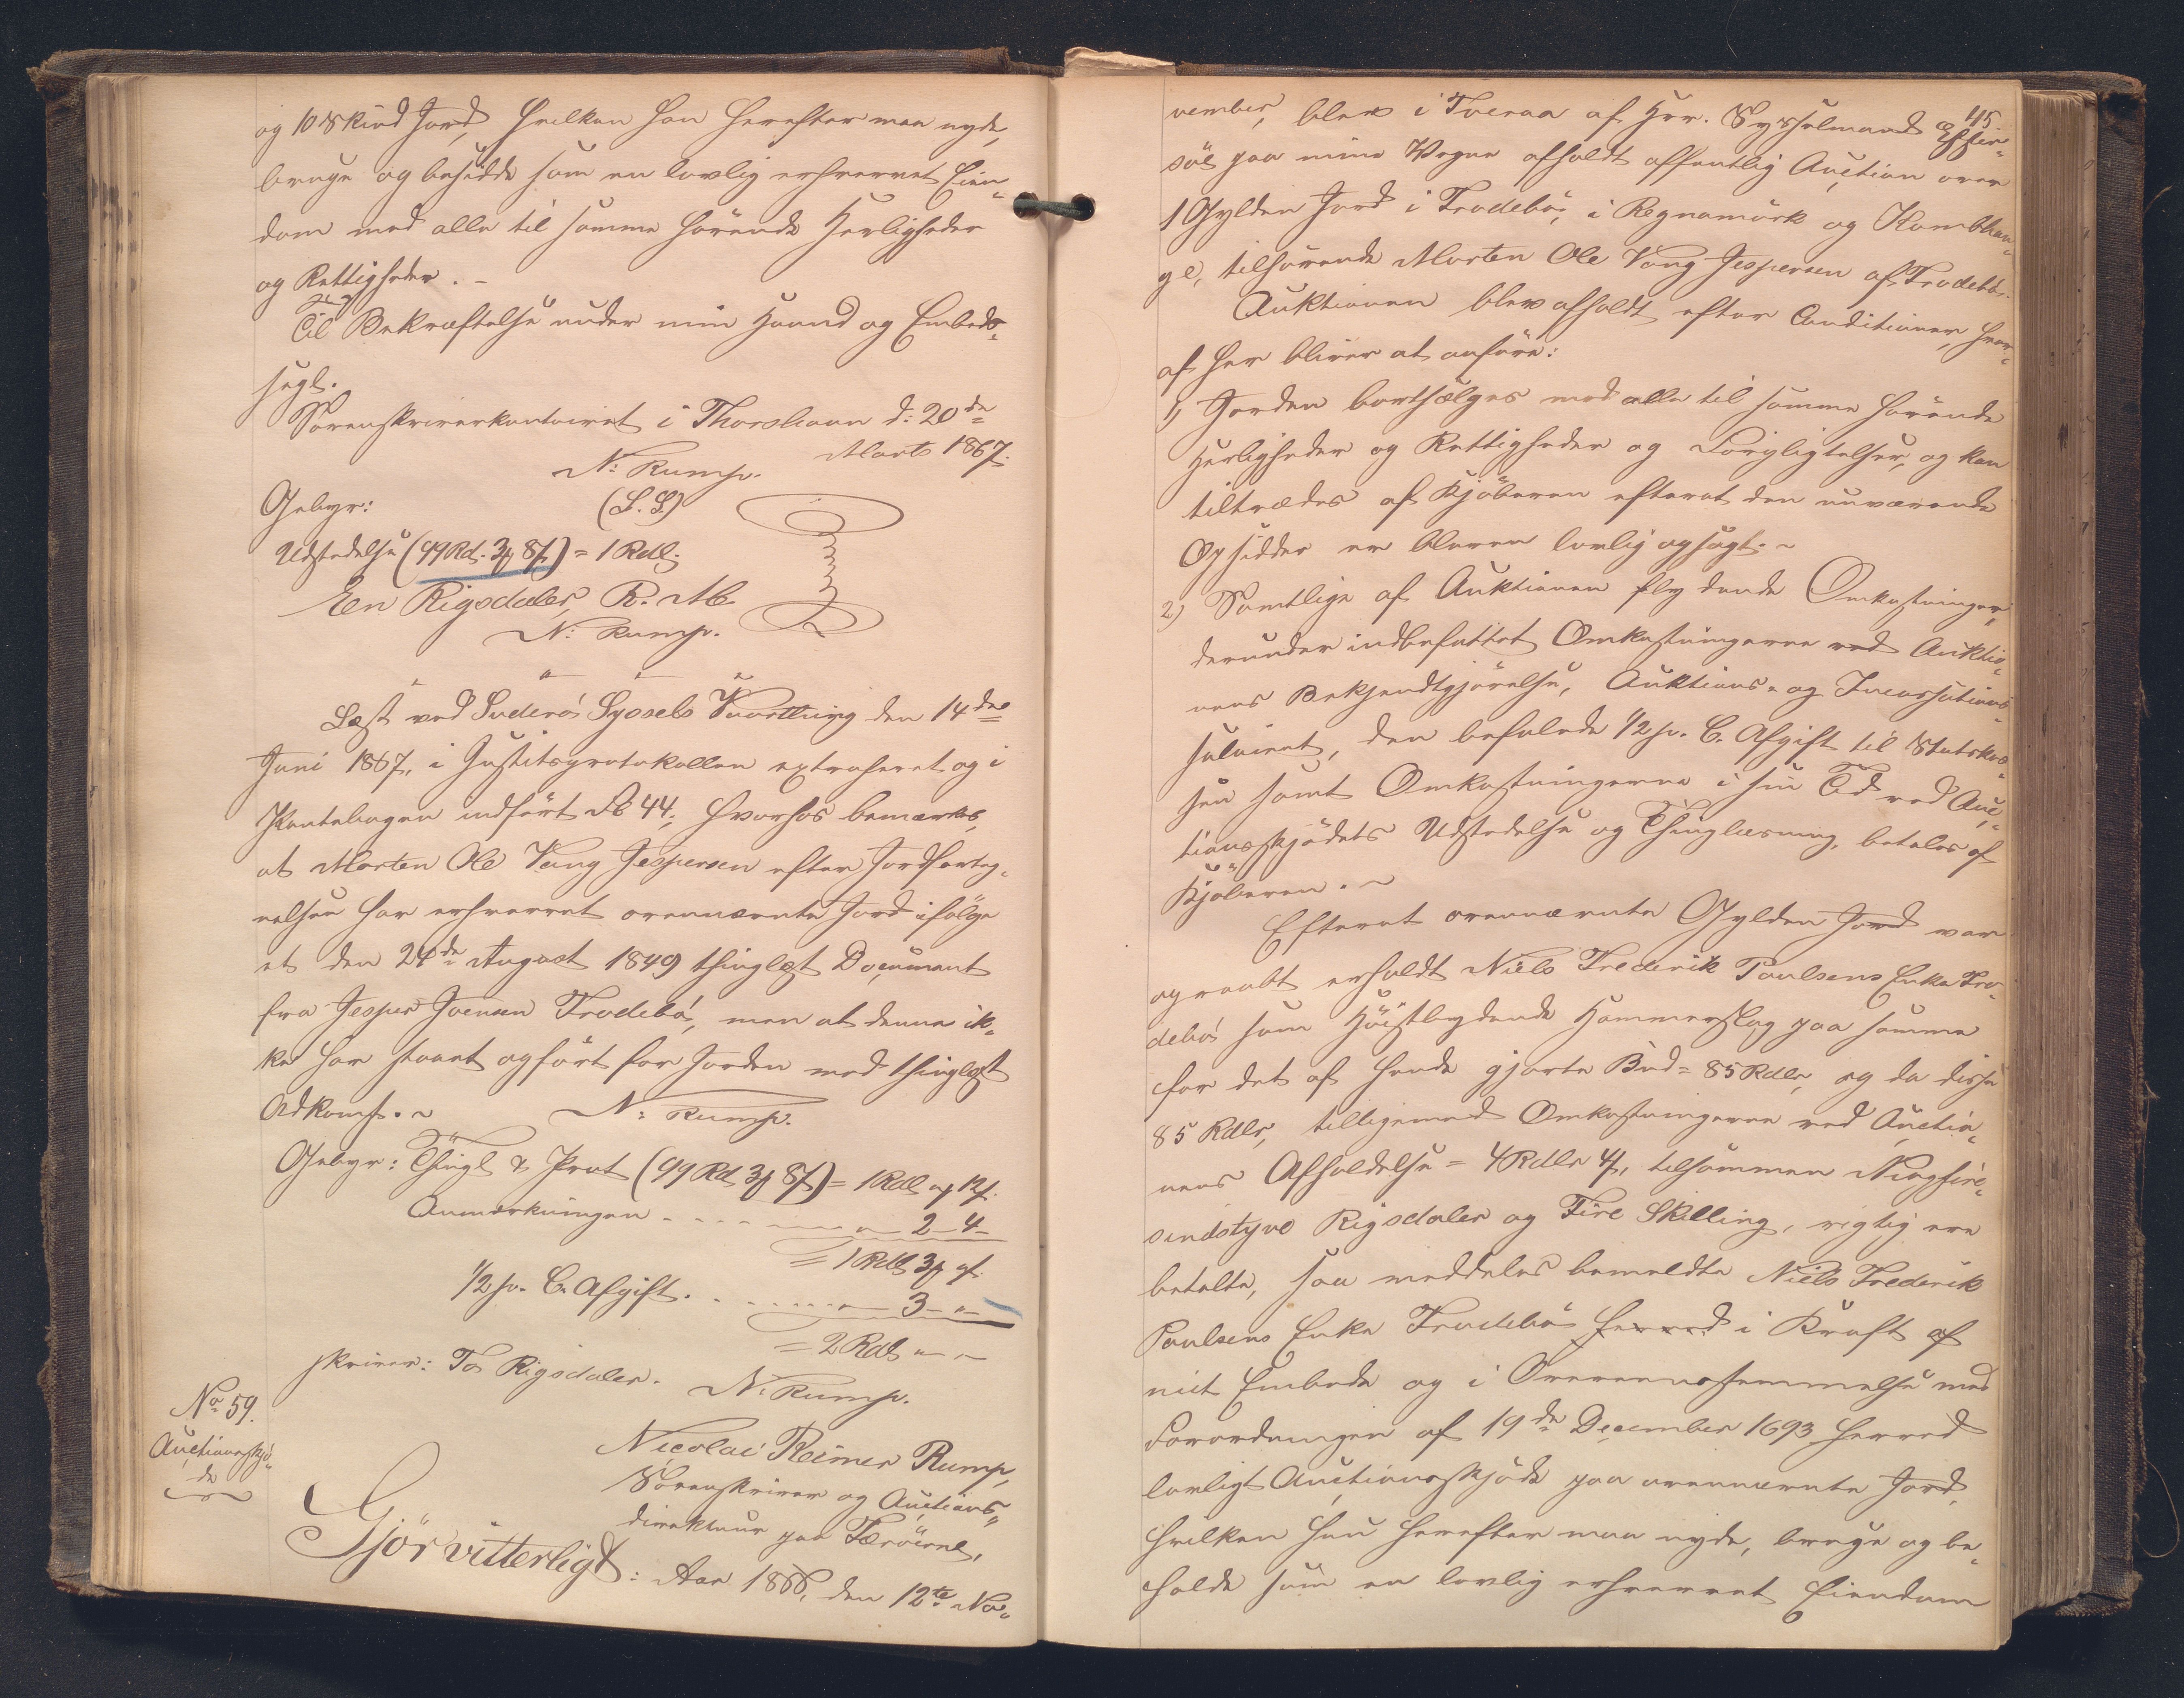 og 10 Skind Jord, hvilken han herefter maa nyde,
bruge og besidde som en lovlig erhvervet Eien-
dom med alle til samme hörende Herligheder
og Rettigheder. -
Til Bekræftelse under min Haand og Embeds-
segl.
Sorenskriverkontoiret i Thorshavn d: 20de
Marts 1867.
N: Rump.
(L. S.)
Gebyr:
Udstedelse (99 Rd. 3 8) = 1 Rdl.
Een Rigsdaler R. M.
N: Rump.
Læst ved Suderö Syssels Vaarthing den 14de
Juni 1867, i Justitsprotokollen extraheret og i
Pantebogen indfört No 44; hvorhos bemærkes,
at Morten Ole Vang Jespersen efter Jordforteg-
nelsen har erhvervet ovennævnte Jord ifölge
et den 24de August 1849 thinglæst Document
fra Jesper Joensen Trodebö, men at denne ik-
ke har staaet opfört for Jorden med thinglæst
Adkomst. ~
N: Rump.
Gebyr: Thingl & Prot (99 Rd 3 8) = 1 Rdl og 12
Anmærkningen - - - - - 2 - 4 -
= 1 Rdl 3
1/2 p. C. Afgift. - - - - - 3 - " -
= 2 Rdl " - "
skriver: To Rigsdaler.
N: Rump.
No 59.
Auctionsskjö-
de
Nicolai Reimer Rump,
Sorenskriver og Auctions-
direkteur paa Færöerne,
Gjör vitterligt: Aar 1866, den 12te No-
45
vember, blev i Tveraa af Hrr. Sysselmand Effer-
söe paa mine Vegne afholdt offentlig Auction over
1 Gylden Jord i Trodebö, i Regnamörk og Kambhau-
ge, tilhörende Morten Ole Vang Jespersen af Trodebö.
Auktionen blev afholdt efter Conditioner, hvor-
af her bliver at anföre:
1) Jorden bortsælges med alle til samme hörende
Herligheder og Rettigheder og Forpligtelser, og kan
tiltrædes af Kjöberen efterat den nuværende
Opsidder er bleven lovlig opsagt. ~
2) Samtlige af Auktionen flydende Omkostninger
derunder indbefattet Omkostningerne ved Auktio-
nens Bekjendtgjörelse, Auktions- og Incassations-
salairet, den befalede 1/2 p. C. Afgift til Statskas-
sen samt Omkostningerne i sin Tid ved Auc-
tionsskjödets Udstedelse og Thinglæsning, betales af
Kjöberen. ~
Efterat ovennævnte Gylden Jord var
opraabt erholdt Niels Frederik Poulsens Enke Tro-
debö som Höistbydende Hammerslag paa samme
for det af hende gjorte Bud = 85 Rdlr, og da disse
85 Rdlr, tilligemed Omkostningerne ved Auctio-
nens Afholdelse = 4 Rdlr 4, tilsammen Niogfiir-
sindstyve Rigsdaler og Fire Skilling, rigtig ere
betalte, saa meddeles bemeldte Niels Frederik
Poulsens Enke Trodebö herved i Kraft af
mit Embede og i Overeensstemmelse med
Forordningen af 19de December 1693 herved
lovligt Auctionsskjöde paa ovennævnte Jord,
hvilken hun herefter maa nyde, bruge og be-
holde som en lovlig erhvervet Eiendom